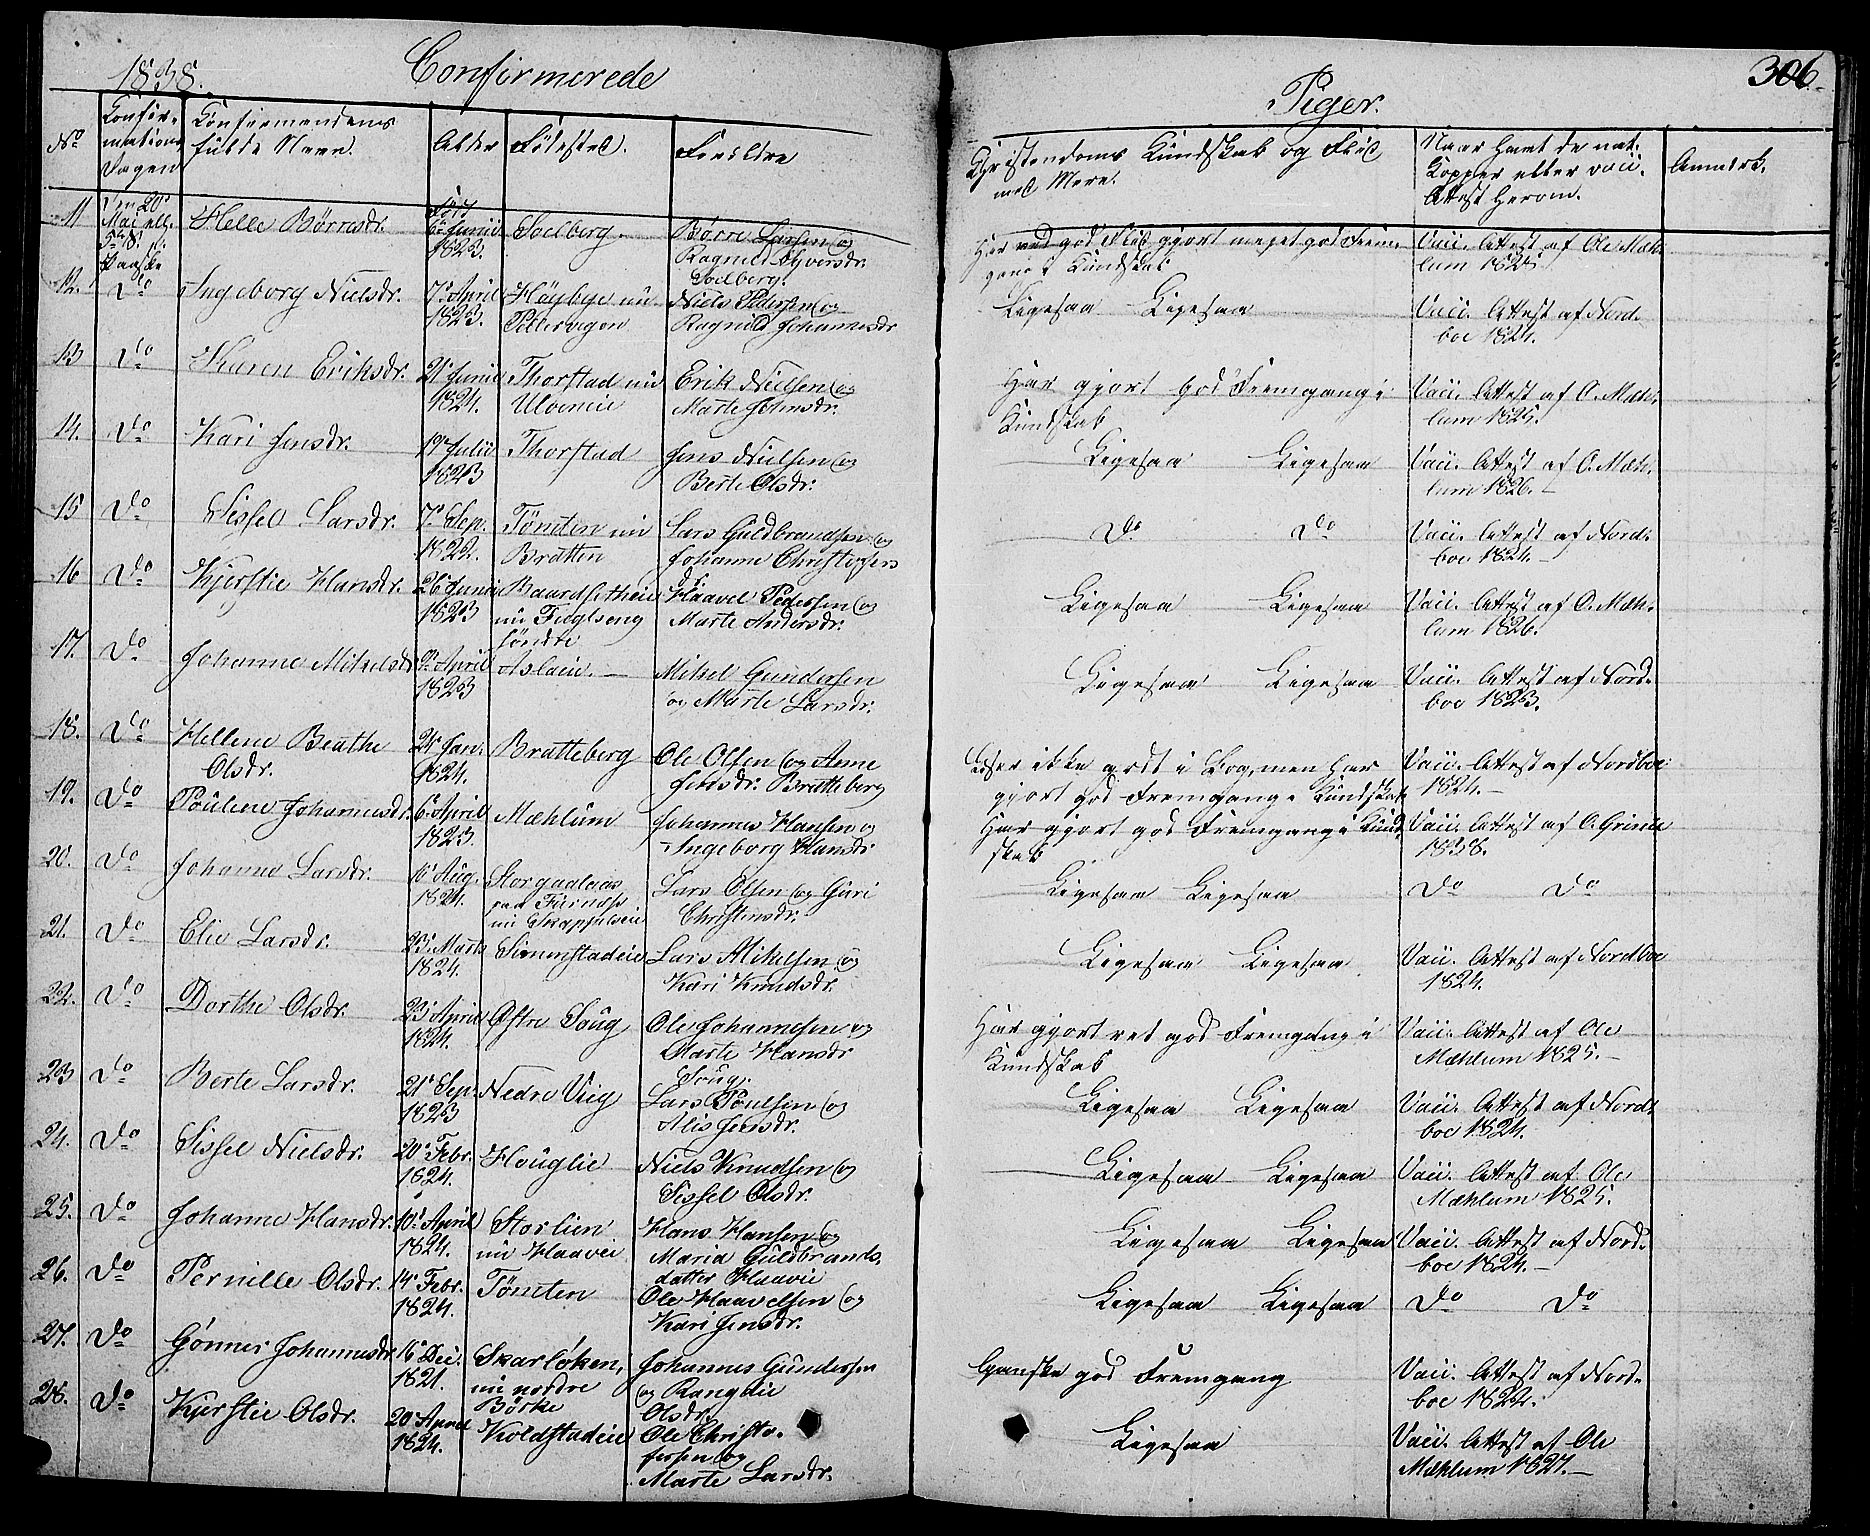 1838.
Confirmerede
Piger.
306.
No
Confir-
mations
Dagen
Confirmandens
fulde Navn.
Alder
Fødested.
Forældre
Christendoms Kundskab og Flid
med Mere.
Naar havt de nat.
Kopper eller vacc.
Attest herom.
Anmærk.
11
Den 20de
Mai
Paaske
Helle Børresdr.
Født
6te Junii
1823.
Soelberg.
Børre Larsen og
Ragnild Syversdr.
Soelberg.
Har ved god Flid gjort meget god Frem-
gang i Kundskab
Vacc. Attest af Ole Mæh-
lum 1825.
12.
Do
Ingeborg Nielsdr.
7de April
1823.
Høybye nu
Niels Pedersen og
Ragnild Johannesdr
Ligesaa Ligesaa
Vacc. Attest af Nord-
boe 1824.
13
Do
Karen Eriksdr.
21 Junii
1824.
Thorstad nu
Erik Nielsen og
Marte Johnsdr.
Har gjort god Fremgang i
Kundskab
Vacc. Attest af O. Mæh-
lum 1825.
14.
Do
Kari Jensdr.
19de Julii
1823
Thorstad
Jens Nielsen og
Berte Olsdr.
Ligesaa Ligesaa
Vacc. Attest af O. Mæh-
lum 1826.
15
Do
Sissel Larsdr.
7de Sep.
1822.
Tømten nu
Bratten
Lars Guldbrandsen og
Johanne Christofers
dr
Do Do
Vacc. Attest af Nord-
boe 1824.
16
Do
Kjerstie Hansdr.
26 Junii
1823
Baardsetheie
nu Fuglseng
søndre
Haavel Pedersen og
Marte Andersdr.
Ligesaa Ligesaa
Vacc. Attest af O. Mæh-
lum 1826.
17.
Do
Johanne Mikelsdr
9de April
1823
Aslaeie.
Mikel Gundersen
og Marte Larsdr.
Ligesaa Ligesaa
Vacc. Attest af Nord-
boe 1823.
18.
Do
Hellene Beathe
Olsdr.
21 Jan.
1824.
Bratteberg
Ole Olsen og Anne
Jensdr. Bratteberg
Læser ikke godt i Bog, men har
gjort god Fremgang i Kundskab
Vacc. Attest af Nordboe
1824.
19.
Do
Poulene Johannesdr.
6te April
1823.
Mæhlum
Johannes Hansen og
Ingeborg Hansdr
Har gjort god Fremgang i Kund-
skab
Vacc. Attest af O. Grinde
1838.
20.
Do
Johanne Larsdr.
10 Aug.
1824.
Storgaalaas
paa Furnæs
nu Skappelseie
Lars Olsen og Guri
Christensdr.
Ligesaa Ligesaa
Do Do
21.
Do
Elie Larsdr.
25 Marts
1824.
Simenstadeie
Lars Mikelsen og
Kari Knudsdr.
Ligesaa Ligesaa
Vacc. Attest af Nordboe
1824.
22.
Do
Dorthe Olsdr.
23 April
1824.
Østre Soug
Ole Johannesen og
Marte Hansdr
Soug.
Har gjort ret god Fremgang i
Kundskab
Vacc. Attest af Ole
Mæhlum 1825.
23
Do
Berte Larsdr.
21 Sep.
1823
Nedre Viig
Lars Poulsen og
Alis Jensdr.
Ligesaa Ligesaa
Vacc. Attest af Nord-
boe 1824.
24.
Do
Sissel Nielsdr.
20de Febr.
1824.
Houglie
Niels Knudsen og
Sissel Olsdr.
Ligesaa Ligesaa
Vacc. Attest af Ole
Mæhlum 1825.
25.
Do
Johanne Hansdr.
10de April
1824.
Storlien
nu Haaveie
Hans Hansen og
Maria Guldbrands
datter Haavie
Ligesaa Ligesaa
Vacc. Attest af Nord-
boe 1824.
26.
Do
Pernille Olsdr.
14de Febr.
1824.
Tømten
Ole Haavelsen og
Kari Jensdr.
Ligesaa Ligesaa
Do Do
27.
Do
Gønner Johannesdr
16de Dec.
1821.
Skarløken,
nu nordre
Børke
Johannes Gundersen
og Rangdie
Olsdr.
Ganske god Fremgang
Vacc. Attest af Nord-
boe 1822.
28.
Do
Kjerstie Olsdr.
20de April
1824.
Koldstadeie
Ole Christo-
fersen og
Marte Larsdr.
Ligesaa
Vacc. Attest af Ole
Mæhlum 1827.